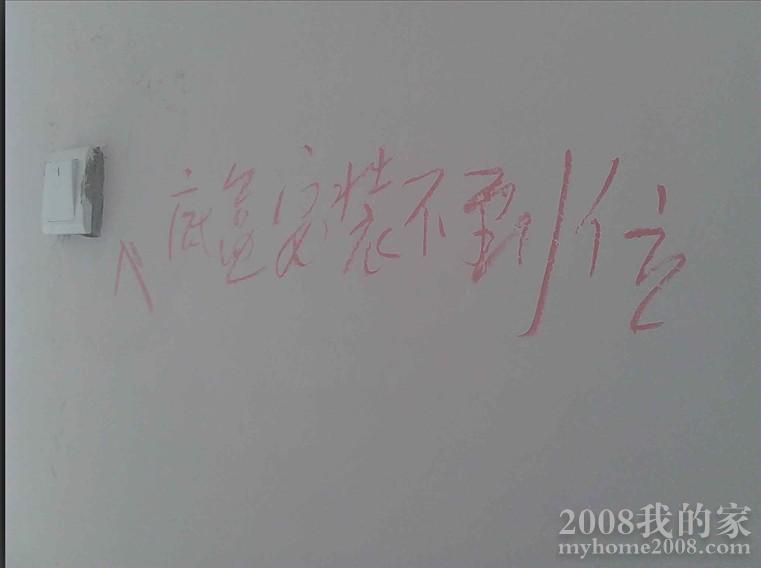 底盒安装不到位
2008我的家
myhome2008.com